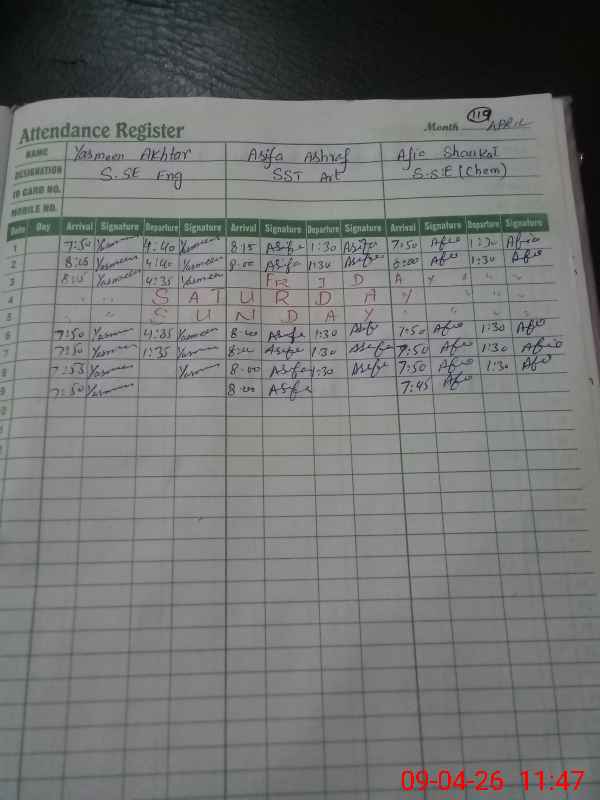 119
Attendance Register Month APRIL
NAME Yasmeen Akhtar Asifa Ashraf Afio Shaukat
DESIGNATION S.SE Eng SST Art S.S.E (Chem)
ID CARD NO.
MOBILE NO.
Date Day Arrival Signature Departure Signature Arrival Signature Departure Signature Arrival Signature Departure Signature
1 7:50 Yasmeen 4:40 Yasmeen 8:15 Asifa 1:30 Asifa 7:50 Afio 1:30 Afio
2 8:05 Yasmeen 4:40 Yasmeen 8:00 Asifa 1:30 Asifa 8:00 Afio 1:30 Afio
3 Yasmeen 4:35 Yasmeen FRIDAY " "
4 " " SATURDAY " "
5 " " SUNDAY " " "
6 7:50 Yasmeen 4:35 Yasmeen 8:00 Asifa 1:30 Asifa 7:50 Afio 1:30 Afio
7 7:50 Yasmeen 1:35 Yasmeen 8:00 Asifa 1:30 Asifa 7:50 Afio 1:30 Afio
8 7:53 Yasmeen Yasmeen 8:00 Asifa 1:30 Asifa 7:50 Afio 1:30 Afio
9 7:50 Yasmeen 8:00 Asifa 7:45 Afio
10
09-04-26 11:47